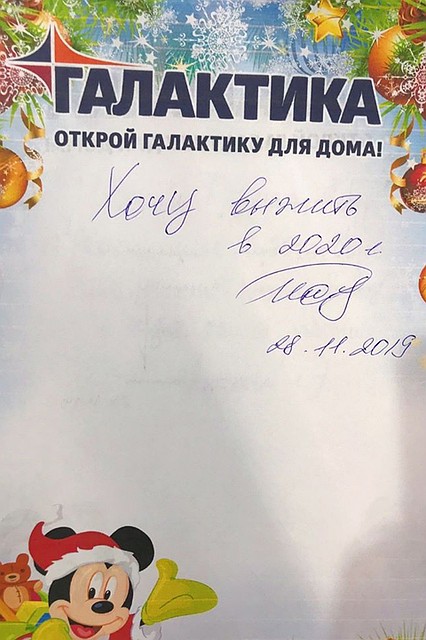 ГАЛАКТИКА
ОТКРОЙ ГАЛАКТИКУ ДЛЯ ДОМА!
Хочу выжить
в 2020 г.
28.11.2019